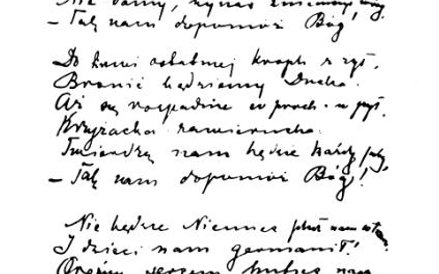 Nie damy, by nas zniemczył wróg.
– Tak nam dopomóż Bóg!
Do krwi ostatniej kropli z żył.
Bronić będziemy Ducha.
Aż się rozpadnie w proch i w pył.
Krzyżacka zawierucha.
Twierdzą nam będzie każdy próg,
– Tak nam dopomóż Bóg!
Nie będzie Niemiec pluł nam w twarz
I dzieci nam germanił!
Orężny hufiec nasz